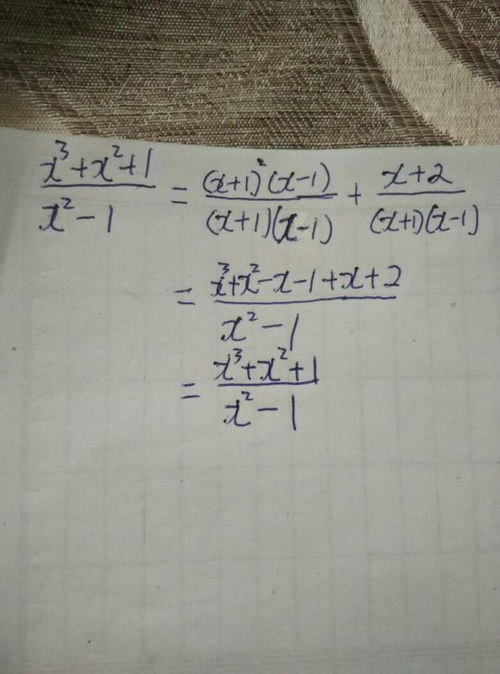 \frac{x^3+x^2+1}{x^2-1} = \frac{(x+1)^2(x-1)}{(x+1)(x-1)} + \frac{x+2}{(x+1)(x-1)}
= \frac{x^3+x^2-x-1+x+2}{x^2-1}
= \frac{x^3+x^2+1}{x^2-1}